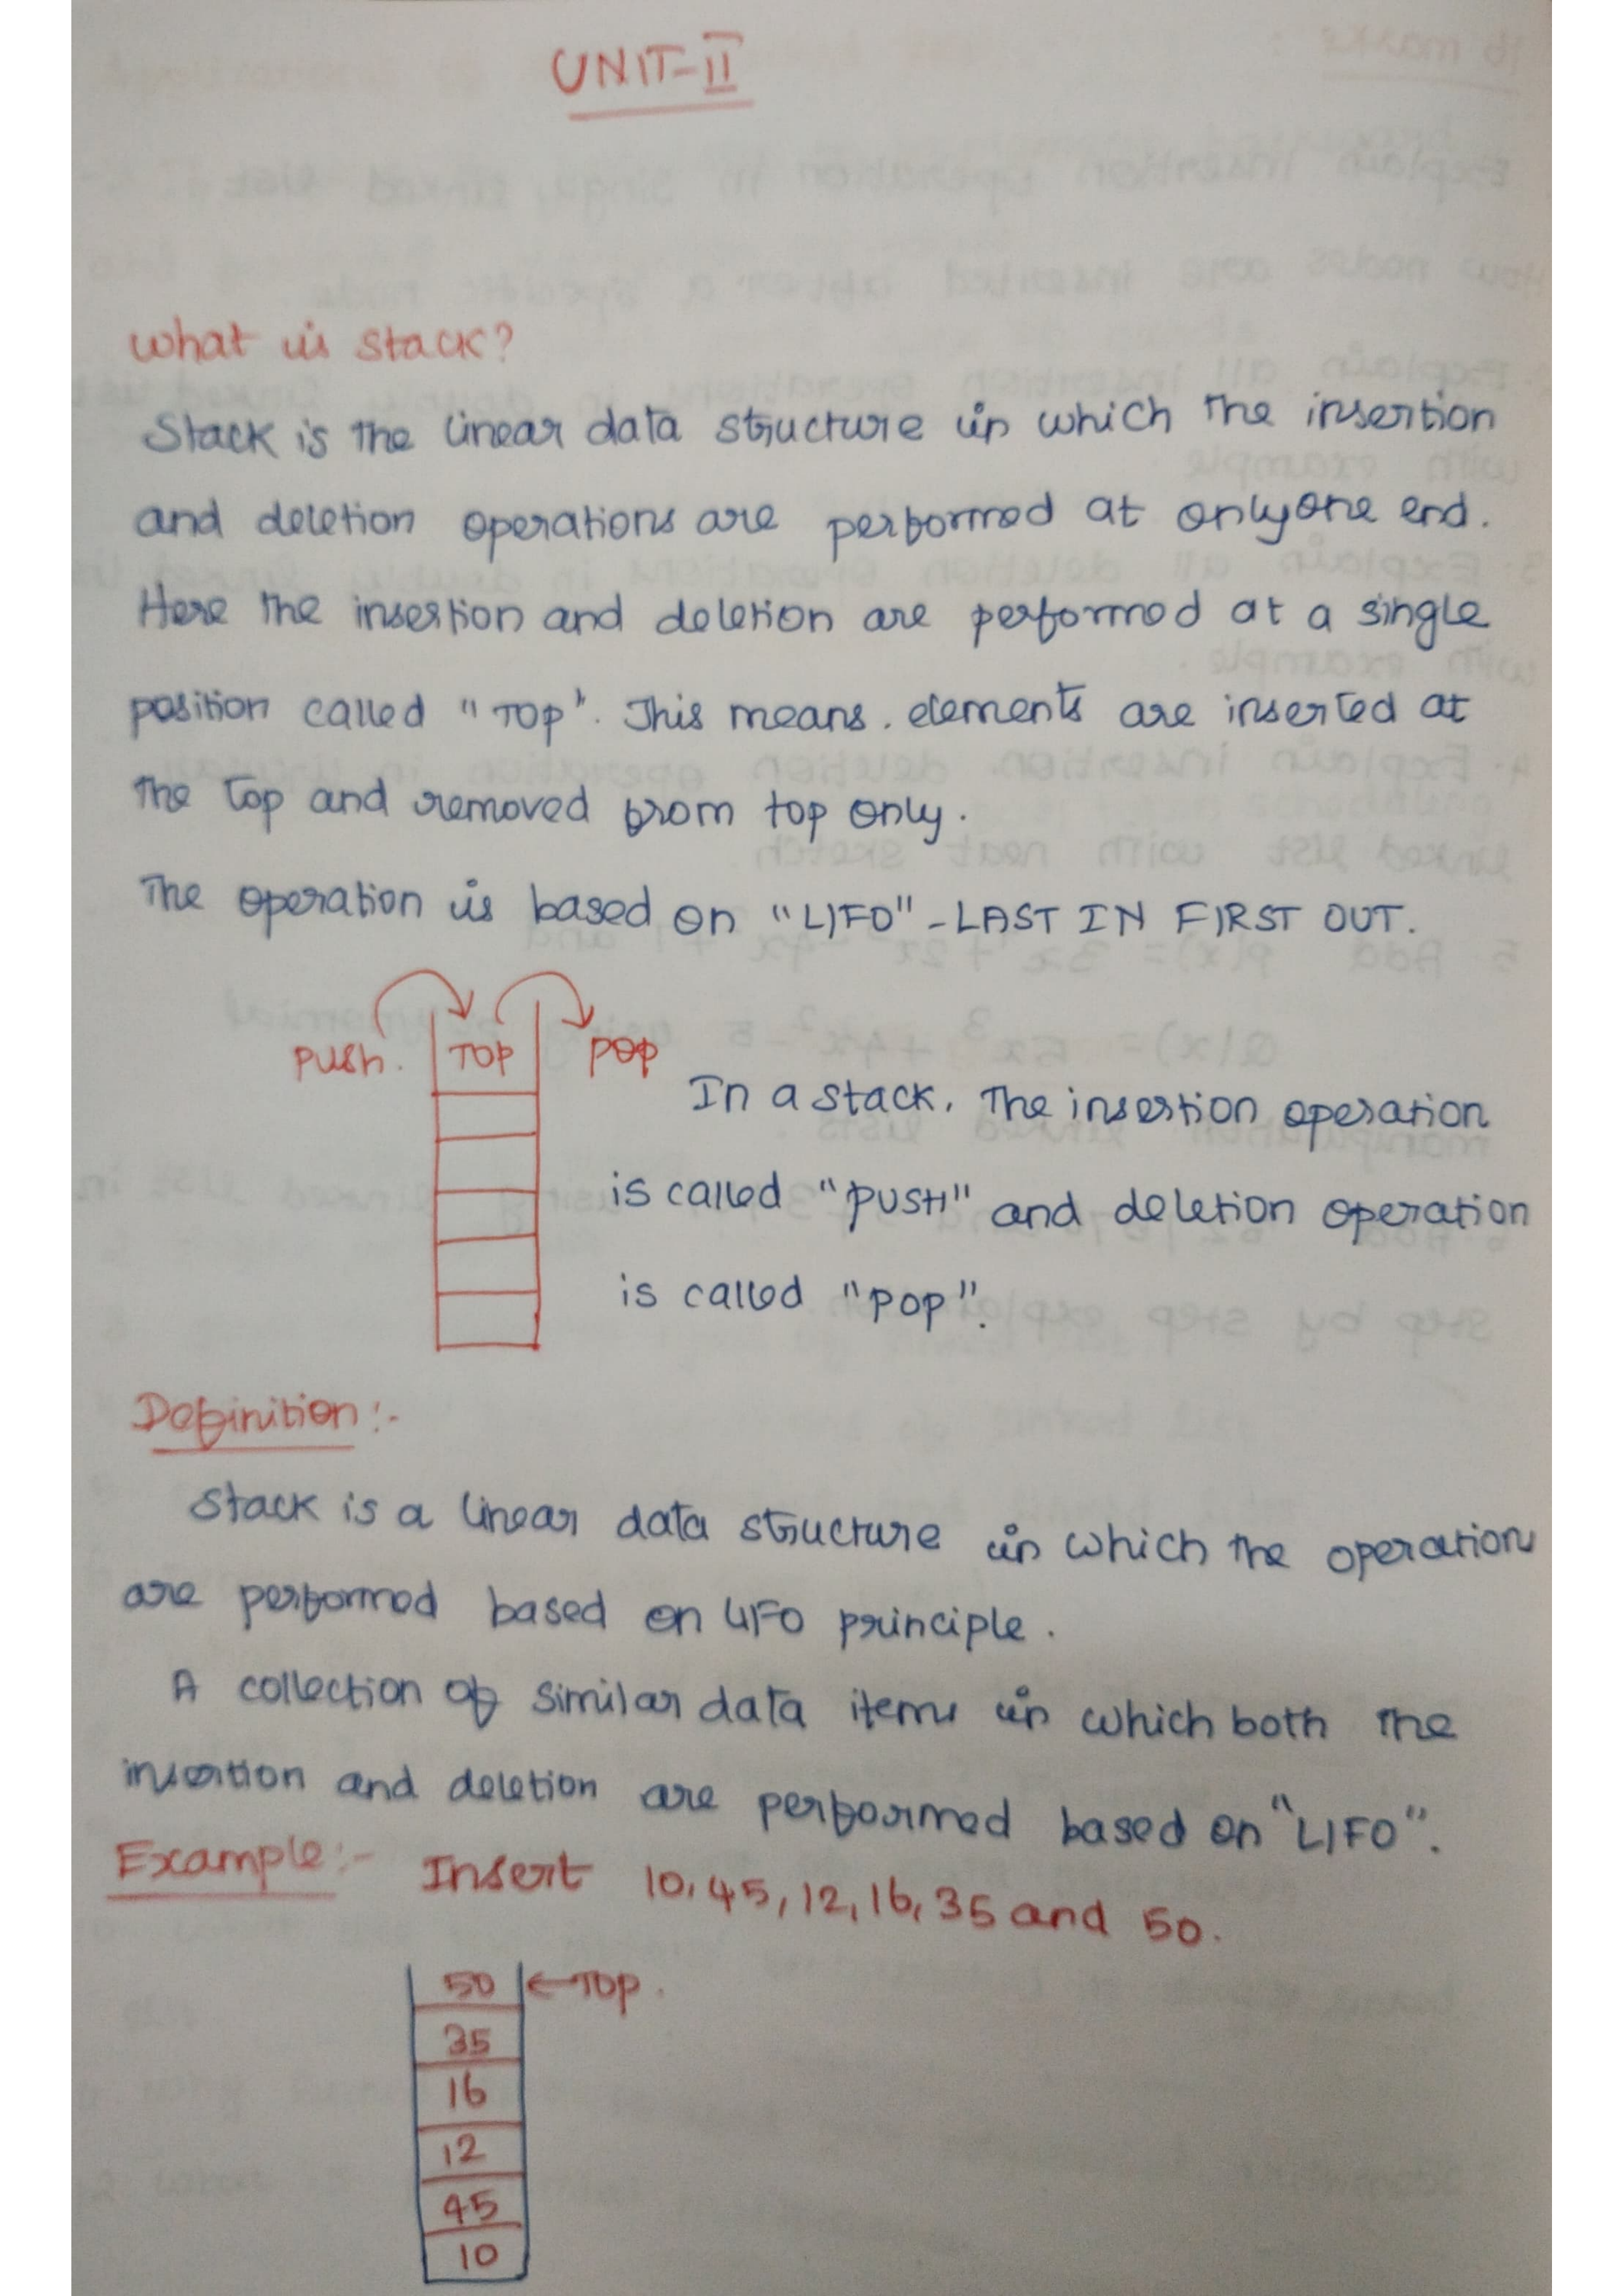 UNIT-II
What is stack?
Stack is the linear data structure in which the insertion
and deletion operations are performed at only one end.
Here the insertion and deletion are performed at a single
position called "TOP". This means. elements are inserted at
the top and removed from top only.
The operation is based on "LIFO" - LAST IN FIRST OUT.
PUSh. TOP POP
In a stack, The insertion operation
is called "PUSH" and deletion operation
is called "POP".
Definition:-
Stack is a linear data structure in which the operations
are performed based on LIFO principle.
A collection of similar data items in which both the
insertion and deletion are performed based on "LIFO".
Example:- Insert 10, 45, 12, 16, 35 and 50.
50 ←TOP.
35
16
12
45
10